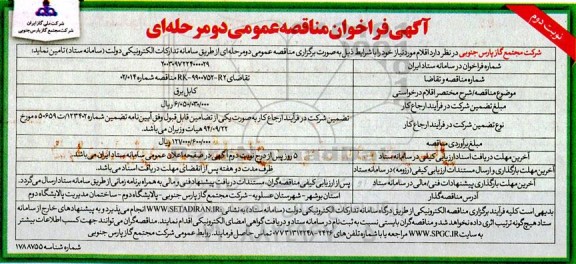 نوبت دوم
شرکت ملی گاز ایران
شرکت مجتمع گاز پارس جنوبی
آگهی فراخوان مناقصه عمومی دو مرحله‌ای
شرکت مجتمع گاز پارس جنوبی در نظر دارد اقلام مورد نیاز خود را با شرایط ذیل به صورت برگزاری مناقصه عمومی دو مرحله‌ای از طریق سامانه تدارکات الکترونیکی دولت (سامانه ستاد) تامین نماید:
شماره فراخوان در سامانه ستاد ایران
شماره مناقصه و تقاضا تقاضای RK-9900752-R2 مناقصه شماره ۰۲/۰۱۴
موضوع مناقصه/شرح مختصر اقلام درخواستی کابل برق
مبلغ تضمین شرکت در فرآیند ارجاع کار ۶/۰۵۰/۰۳۰/۰۰۰ ریال
نوع تضمین شرکت در فرآیند ارجاع کار تضمین شرکت در فرآیند ارجاع کار به صورت یکی از تضامین قابل قبول وفق آیین نامه تضمین شماره ۱۲۳۴۰۲/ت۵۰۶۵۹ه مورخ ۹۴/۰۹/۲۲ هیات وزیران می باشد.
مبلغ برآوردی مناقصه ۱۲۱/۰۰۰/۶۰۰/۰۰۰ ریال
آخرین مهلت دریافت اسناد ارزیابی کیفی در سامانه ستاد ۵ روز پس از درج نوبت دوم آگهی در صفحه اعلان عمومی سامانه ستاد ایران می باشد.
آخرین مهلت بارگذاری و ارسال مستندات ارزیابی کیفی (رزومه) در سامانه ستاد ظرف مدت دو هفته پس از انقضای مهلت دریافت اسناد می باشد.
آخرین مهلت بارگذاری پیشنهادات فنی/مالی در سامانه ستاد پس از ارزیابی کیفی مناقصه‌گران، مستندات دریافت پیشنهاد فنی و مالی به همراه برنامه زمانی از طریق سامانه ستاد ارسال می گردد.
آدرس مناقصه‌گذار استان بوشهر - شهرستان عسلویه - شرکت مجتمع گاز پارس جنوبی - پالایشگاه دوم - ساختمان مدیریت پالایشگاه دوم
بدیهی است کلیه فرآیند برگزاری مناقصه از طریق درگاه سامانه تدارکات الکترونیکی دولت (سامانه ستاد) به نشانی WWW.SETADIRAN.IR انجام می پذیرد و به پیشنهادهای خارج از سامانه
ستاد هیچ گونه ترتیب اثری داده نخواهد شد و مناقصه‌گران بایستی نسبت به ثبت نام در سامانه ستاد و دریافت گواهی امضای الکترونیکی اقدام نمایند. مناقصه گران می توانند جهت کسب اطلاعات بیشتر
به سایت WWW.SPGC.IR مراجعه یا با شماره تلفن های تماس حاصل فرمایند. روابط عمومی شرکت مجتمع گاز پارس جنوبی
شماره شناسه ۱۷۸۸۷۵۵